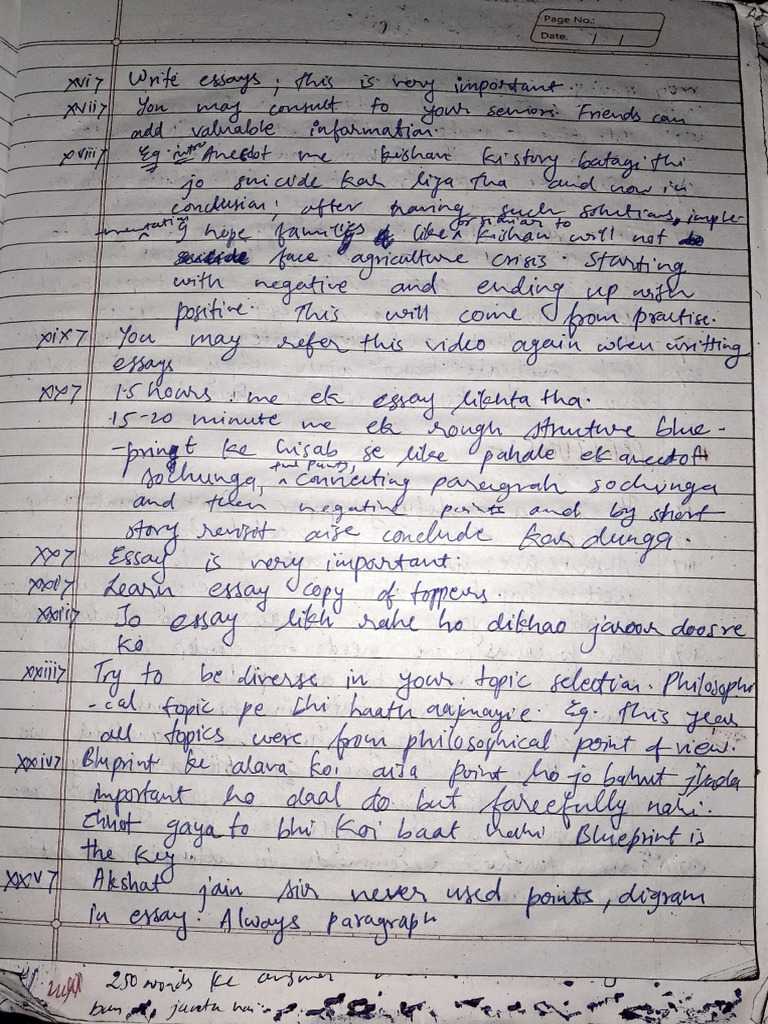 Page No.:
Date. / /
xvi> Write essays; this is very important.
xvii> You may consult to your seniors. Friends can
add valuable information.
xviii> Eg. intro Anecdot me kishan ki story batagi thi
jo suicide kar liya tha and now in
conclusion; after having such solutions, imple-
mentation I hope families like or similar to kishan will not
face agriculture crisis. Starting
with negative and ending up with
positive. This will come from practise.
xix> You may refer this video again when writting
essays
xx> 1.5 hours me ek essay likhta tha.
15-20 minute me ek rough structure blue-
-print ke hisab se like pahale ek anecdot
sochunga, connecting paragrah sochunga
and then negative points and by short
story revisit aise conclude kar dunga.
xx> Essay is very important.
xxi> Learn essay copy of toppers.
xxii> Jo essay likh rahe ho dikhao jaroor doosre
ko
xxiii> Try to be diverse in your topic selection. Philosophi
-cal topic pe bhi haath aajmayie. Eg. this year
all topics were from philosophical point of view.
xxiv> Bluprint ke alava koi aisa point ho jo bahut jyada
important ho daal do but forcefully nahi.
chhut gaya to bhi koi baat nahi Blueprint is
the key.
xxv> Akshat jain sir never used points, digram
in essay. Always paragraph
250 words ke answer
ban jaata hai